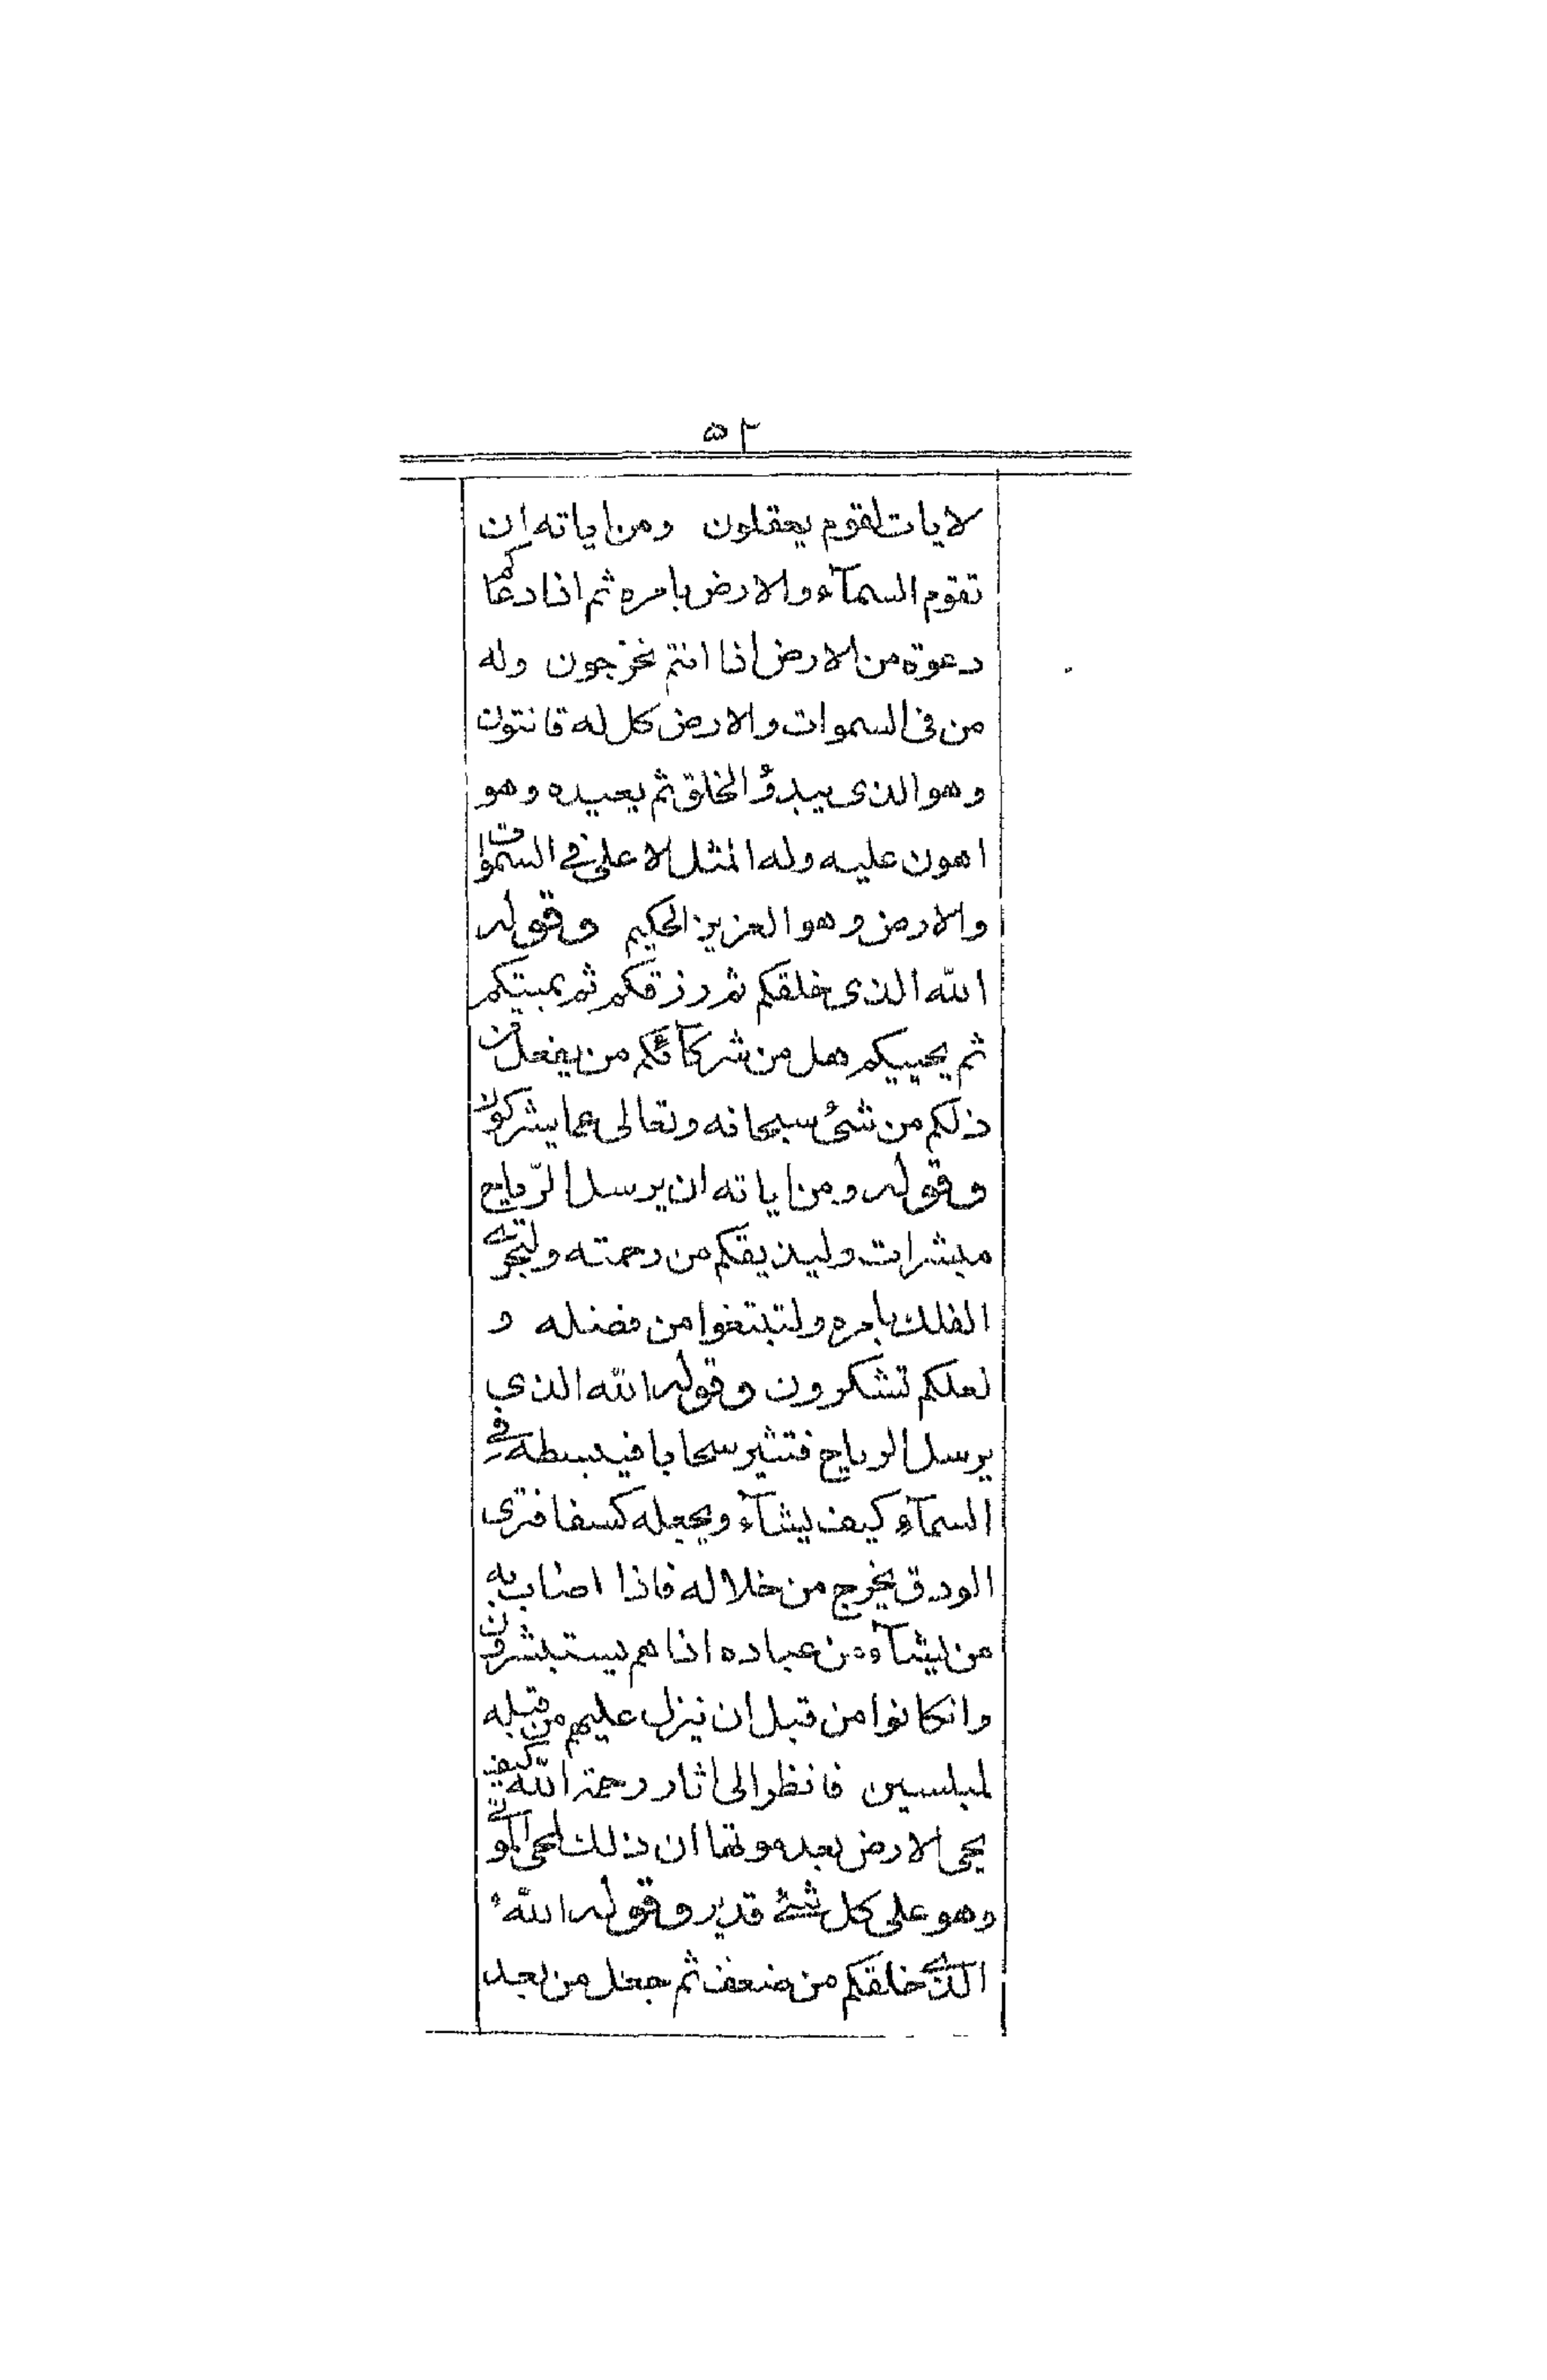 ٥٢
لايات لقوم يعقلون ومن اياته ان
تقوم السمآء والارض بامره ثم اذا دعاكم
دعوة من الارض اذا انتم تخرجون وله
من فى السموات والارض كل له قانتون
وهو الذى يبدؤ الخلق ثم يعيده وهو
اهون عليه وله المثل الاعلى فى السموات
والارض وهو العزيز الحكيم وقوله
الله الذى خلقكم ثم رزقكم ثم يميتكم
ثم يحييكم هل من شركآئكم من يفعل من
ذلكم من شئ سبحانه وتعالى عما يشركون
وقوله ومن اياته ان يرسل الرّياح
مبشرات وليذيقكم من رحمته ولتجرى
الفلك بامره ولتبتغوا من فضله و
لعلكم تشكرون وقوله الله الذي
يرسل الرياح فتثير سحابا فيبسطه في
السمآء كيف يشآء ويجعله كسفا فترى
الودق يخرج من خلاله فاذا اصاب به
من يشآء من عباده اذا هم يستبشرون
وان كانوا من قبل ان ينزل عليهم من قبله
لمبلسين فانظر الى اثار رحمة الله كيف
يحى الارض بعد موتها ان ذلك لمحى الموتى
وهو على كل شئ قدير وقوله الله
الذي خلقكم من ضعف ثم جعل من بعد